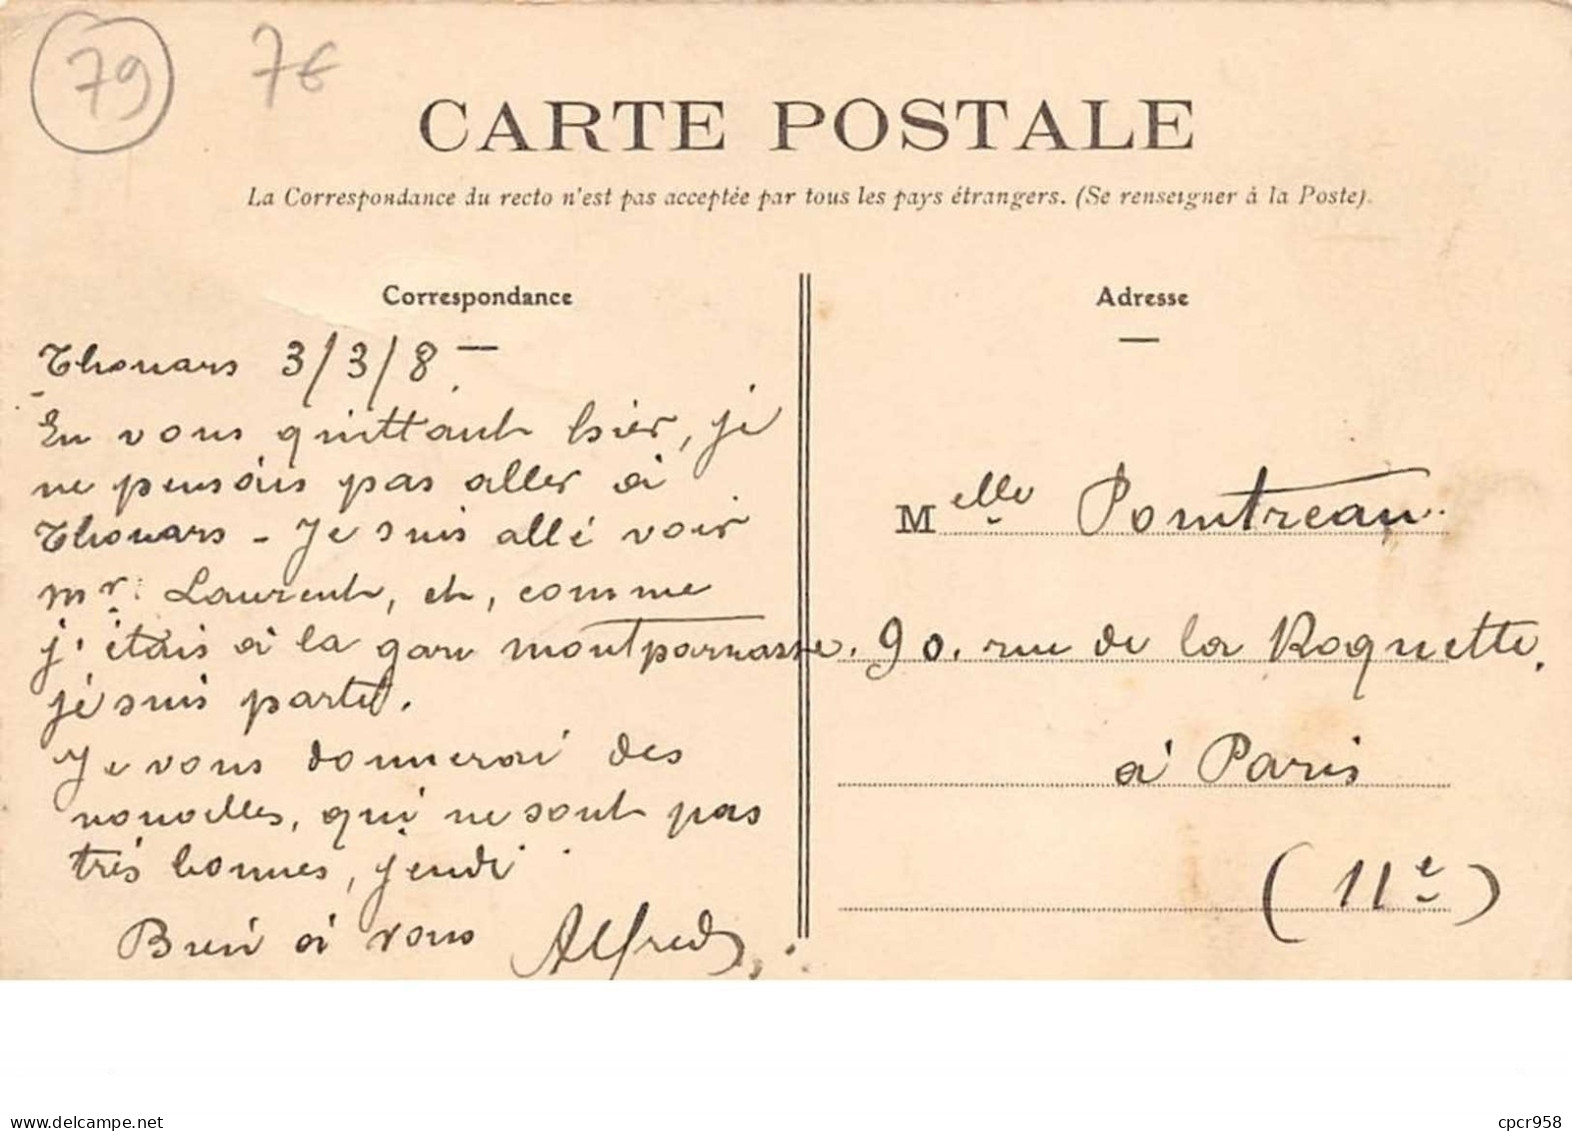 79
7€
CARTE POSTALE
La Correspondance du recto n'est pas acceptée par tous les pays étrangers. (Se renseigner à la Poste).
Correspondance
Thouars 3/3/8 –
En vous quittant hier, je
ne pensais pas aller à
Thouars - Je suis allé voir
mr. Laurent, et, comme
j'étais à la gare montparnasse.
je suis parti.
Je vous donnerai des
nouvelles, qui ne sont pas
très bonnes, jeudi.
Bien à vous Alfred
Adresse
Melle Pointreau.
90. rue de la Roquette.
à Paris
(11e)
delcampe.net
cpcr958